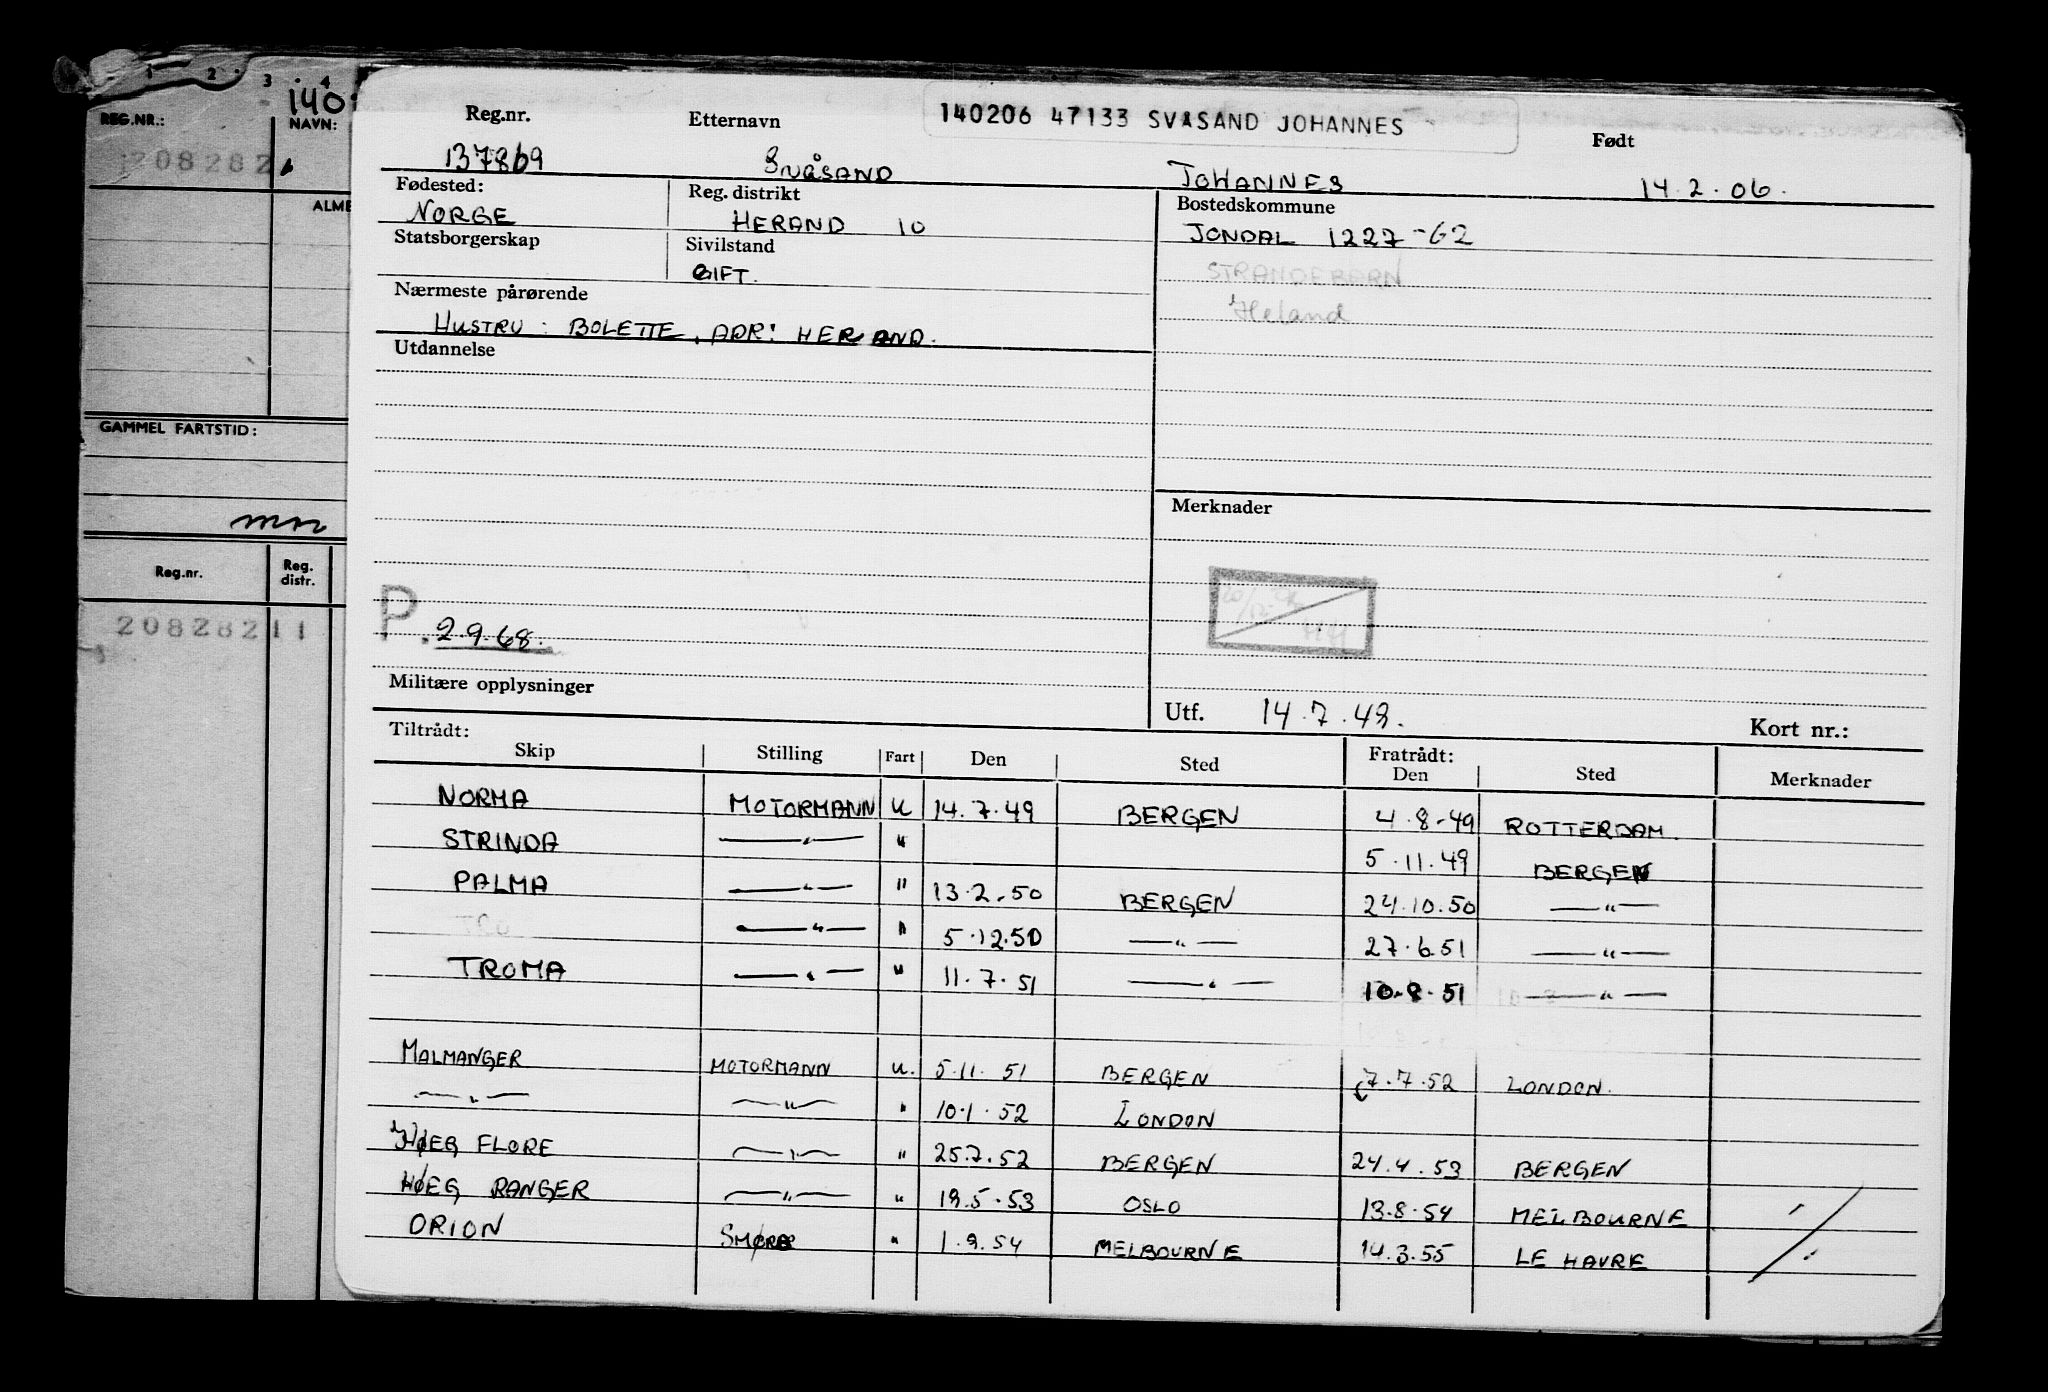 1 2 3 4
140
REG.NR.: NAVN:
208282
ALME
GAMMEL FARTSTID:
Reg.nr. Reg. distr.
208282 11
140206 47133 SVÅSAND JOHANNES
Reg.nr. Etternavn Født
137869 SVÅSAND JOHANNES 14.2.06.
Fødested: Reg. distrikt Bostedskommune
NORGE HERAND 10 JONDAL 1227-62
Statsborgerskap Sivilstand
GIFT.
STRANDEBARN
Heland
Nærmeste pårørende
HUSTRU: BOLETTE, ADR: HERAND.
Utdannelse
Merknader
P. 2.9.68.
Militære opplysninger
Utf. 14.7.49. Kort nr.:
Tiltrådt: Fratrådt:
Skip Stilling Fart Den Sted Den Sted Merknader
NORMA MOTORMANN U 14.7.49 BERGEN 4.8-49 ROTTERDAM.
STRINDA —"— " 5.11.49 BERGEN
PALMA —"— " 13.2.50 BERGEN 24.10.50 —"—
—"— " 5.12.50 —"— 27.6.51 —"—
TROMA —"— " 11.7.51 —"— 10.8.51 —"—
MALMANGER MOTORMANN U. 5.11.51 BERGEN 7.7.52 LONDON.
—"— —"— " 10.1.52 LONDON
HØEG FLORE —"— " 25.7.52 BERGEN 24.4.53 BERGEN
HØEG RANGER —"— " 19.5.53 OSLO 13.8.54 MELBOURNE
ORION SMØRER " 1.9.54 MELBOURNE 14.3.55 LE HAVRE